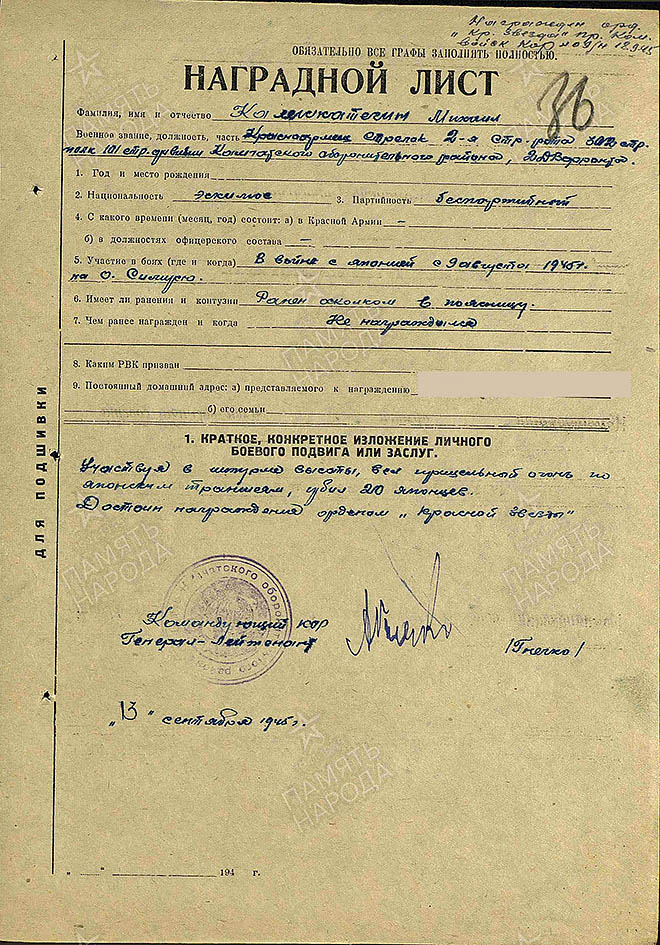 Награжден орд.
"Кр. Звезда" пр. Ком.
войск КОР №09/н 12.9.45
ОБЯЗАТЕЛЬНО ВСЕ ГРАФЫ ЗАПОЛНЯТЬ ПОЛНОСТЬЮ.
НАГРАДНОЙ ЛИСТ
36
Фамилия, имя и отчество Михаил
Военное звание, должность, часть Красноармеец Стрелок 2-я стр. рота 302 стр.
полк 101 стр. дивизии Камчатского оборонительного района, 2ДВфронта.
1. Год и место рождения
2. Национальность эскимос 3. Партийность беспартийный
4. С какого времени (месяц, год) состоит: а) в Красной Армии —
б) в должностях офицерского состава —
5. Участие в боях (где и когда) В войне с японией с 9 августа 1945г.
на о. Симусю.
6. Имеет ли ранения и контузии Ранен осколком в поясницу.
7. Чем ранее награжден и когда Не награждался
8. Каким РВК призван
9. Постоянный домашний адрес: а) представляемого к награждению
б) его семьи
1. КРАТКОЕ, КОНКРЕТНОЕ ИЗЛОЖЕНИЕ ЛИЧНОГО
БОЕВОГО ПОДВИГА ИЛИ ЗАСЛУГ.
Участвуя в штурме высоты, вел прицельный огонь по
японским траншеям, убил 20 японцев.
Достоин награждения орденом „Красной Звезды"
Командующий КОР
Генерал-Лейтенант /Гнечко/
„13" сентября 1945г.
"___" ___ 194 г.
ДЛЯ ПОДШИВКИ
ПАМЯТЬ
НАРОДА